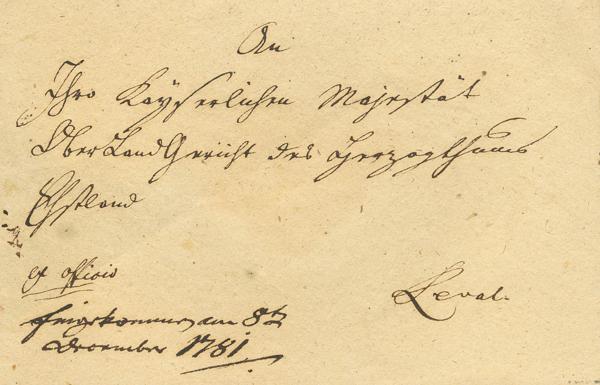 An
Ihro Kayserlichen Majestät
OberLandGericht des Herzogthums
Ehstland
ex officio
Reval.
Eingekommen am 8t
December 1781.